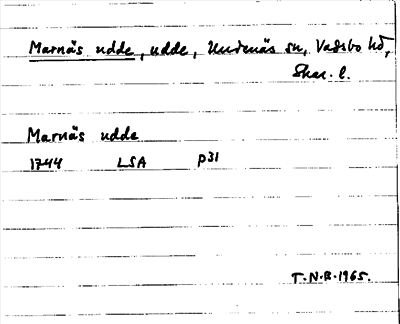 Marnäs udde, udde, Undenäs sn, Vadsbo hd,
Skar. l.
Marnäs udde
1744 LSA P31
T.N.R. 1965.